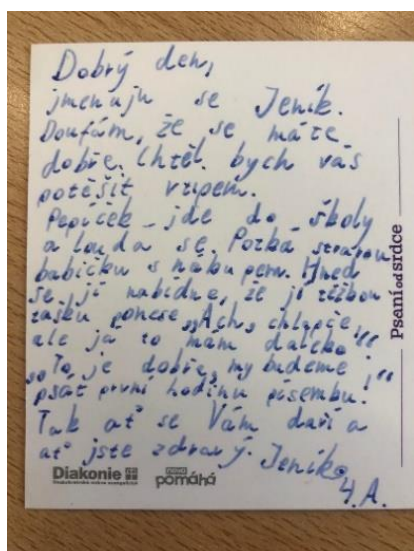 Dobrý den,
jmenuju se Jeník.
Doufám, že se máte
dobře. Chtěl bych vás
potěšit vtipem.
Pepíček jde do školy
a louda se. Potká starou
babičku s nákupem. Hned
se jí nabídne, že jí těžkou
tašku ponese. „Ach, chlapče,
ale ja to mám daleko“
„To je dobře, my budeme
psát první hodinu písemku!“
Tak ať se Vám daří a
ať jste zdravý. Jeník
4. A.
Psaní od srdce
Diakonie
pomáhá